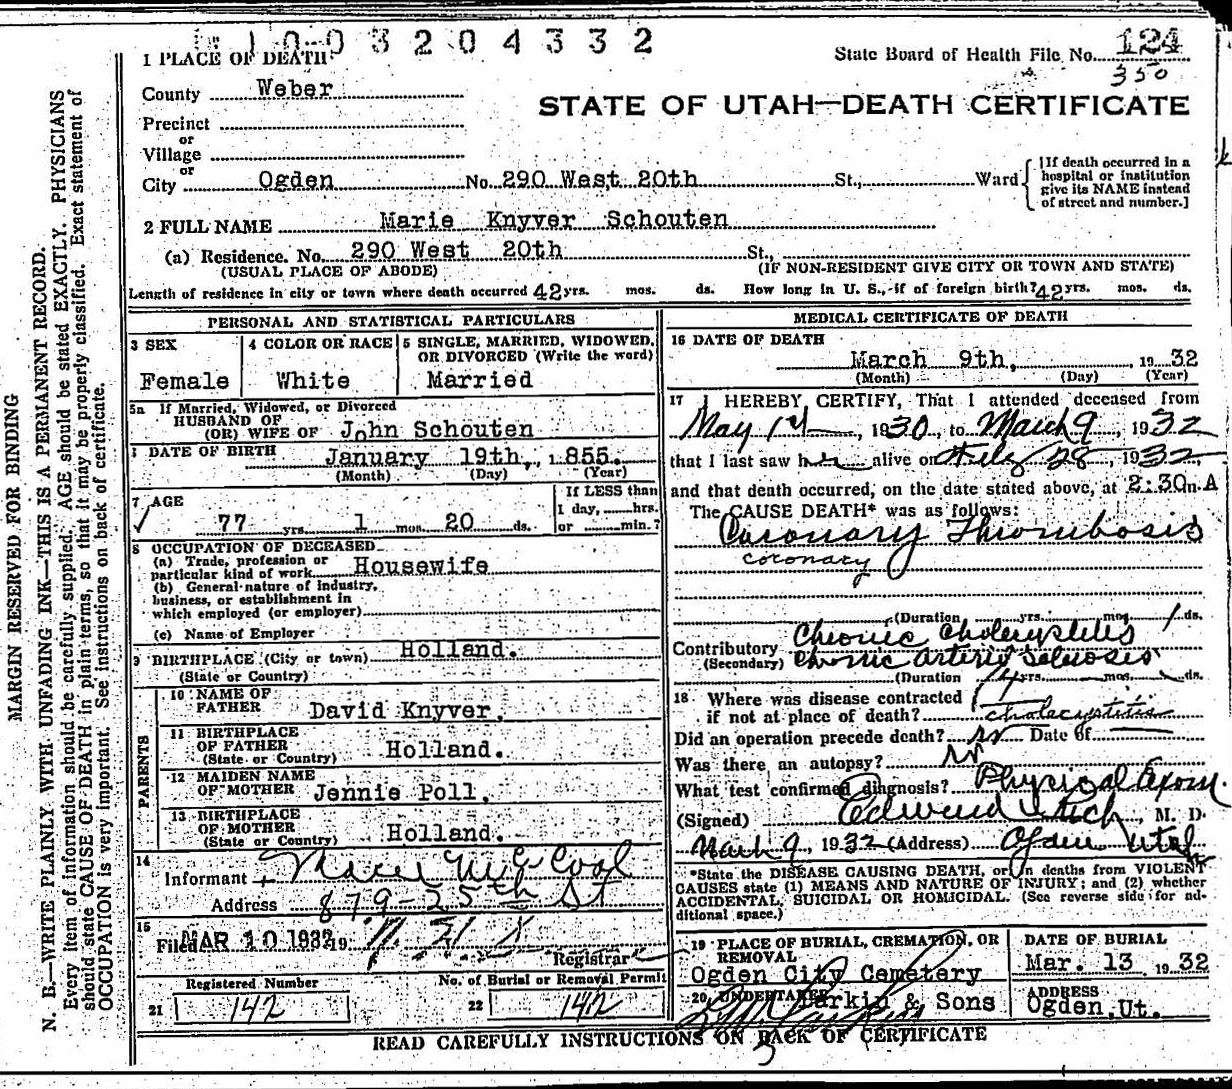 10032 04332
1 PLACE OF DEATH
State Board of Health File No. 124
350
County Weber
STATE OF UTAH—DEATH CERTIFICATE
Precinct
or
Village
or
City Ogden No. 290 West 20th St., Ward
[If death occurred in a hospital or institution give its NAME instead of street and number.]
2 FULL NAME Marie Knyver Schouten
(a) Residence. No. 290 West 20th St.,
(USUAL PLACE OF ABODE) (IF NON-RESIDENT GIVE CITY OR TOWN AND STATE)
Length of residence in city or town where death occurred 42 yrs. mos. ds. How long in U. S., if of foreign birth? 42 yrs. mos. ds.
PERSONAL AND STATISTICAL PARTICULARS
3 SEX
Female
4 COLOR OR RACE
White
5 SINGLE, MARRIED, WIDOWED,
OR DIVORCED (Write the word)
Married
5a If Married, Widowed, or Divorced
HUSBAND OF
(OR) WIFE OF John Schouten
DATE OF BIRTH January 19th, 1855.
(Month) (Day) (Year)
7 AGE
77 yrs. 1 mos. 20 ds.
If LESS than
1 day, hrs.
or min.?
8 OCCUPATION OF DECEASED
(a) Trade, profession or
particular kind of work Housewife
(b) General nature of industry,
business, or establishment in
which employed (or employer)
(c) Name of Employer
9 BIRTHPLACE (City or town) Holland.
(State or Country)
PARENTS
10 NAME OF
FATHER David Knyver.
11 BIRTHPLACE
OF FATHER Holland.
(State or Country)
12 MAIDEN NAME
OF MOTHER Jennie Poll.
13 BIRTHPLACE
OF MOTHER Holland.
(State or Country)
14
Informant McCool
Address 879-25th St
15
Filed MAR 10 1932 19
Registrar
Registered Number
21 142
No. of Burial or Removal Permit
22 142
MEDICAL CERTIFICATE OF DEATH
16 DATE OF DEATH
March 9th, 1932
(Month) (Day) (Year)
17 I HEREBY CERTIFY, That I attended deceased from
May 1st, 1930, to March 9, 1932
that I last saw her alive on Feby 28, 1932
and that death occurred, on the date stated above, at 2:30 m A
The CAUSE DEATH* was as follows:
Coronary Thrombosis
coronary
(Duration yrs. mos. 1 ds.
Contributory Chronic Cholecystitis
(Secondary) Chronic Arterio Sclerosis
(Duration yrs. mos. ds.
18 Where was disease contracted
if not at place of death? cholecystitis
Did an operation precede death? no Date of
Was there an autopsy? no
What test confirmed diagnosis? Physical Exam.
(Signed) Edward , M. D.
March 9, 1932 (Address) Ogden Utah
*State the DISEASE CAUSING DEATH, or in deaths from VIOLENT
CAUSES state (1) MEANS AND NATURE OF INJURY; and (2) whether
ACCIDENTAL, SUICIDAL OR HOMICIDAL. (See reverse side for ad-
ditional space.)
19 PLACE OF BURIAL, CREMATION, OR
REMOVAL
Ogden City Cemetery
DATE OF BURIAL
Mar. 13 1932
20 UNDERTAKER
Larkin & Sons
ADDRESS
Ogden, Ut.
READ CAREFULLY INSTRUCTIONS ON BACK OF CERTIFICATE
MARGIN RESERVED FOR BINDING
N. B.—WRITE PLAINLY WITH UNFADING INK—THIS IS A PERMANENT RECORD.
Every item of information should be carefully supplied. AGE should be stated EXACTLY. PHYSICIANS
should state CAUSE OF DEATH in plain terms, so that it may be properly classified. Exact statement of
OCCUPATION is very important. See instructions on back of certificate.